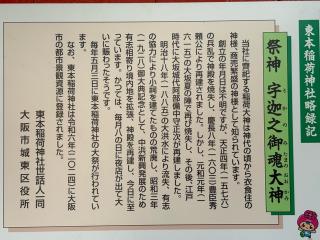 東本稲荷神社略録記
祭神 宇迦之御魂大神
うかのみたまのおおかみ
当社に齊記する稲荷大神は神代の頃から衣食住の
神様、商売繁盛の神様として知られています。
創立の年月日は不明ですが、天正四年(一五七六)
の兵乱で神殿を焼失、慶長八年(一六〇三)豊臣秀
頼公により再建されました。しかし、元和元年(一
六一五)の大坂夏の陣で再び焼失し、その後、江戸
時代に大坂城代阿部備中守正次が再建しました。
明治十八年(一八八五)の大洪水により流失、有志
の協力により小祠を建てたものの荒廃し、昭和三年
(一九二八)御大典記念として、中浜新興発展のため
有志相寄り境内地を拡張、神殿を再建し、今日に至
っています。かつては、毎月八の日に夜店が出て大
いに賑わったそうです。
毎年五月三日に東本稲荷神社の大祭が行われてい
ます。
なお、東本稲荷神社は令和六年(二〇二四)に大阪
市の都市景観資源に登録されました。
東本稲荷神社世話人一同
大阪市城東区役所